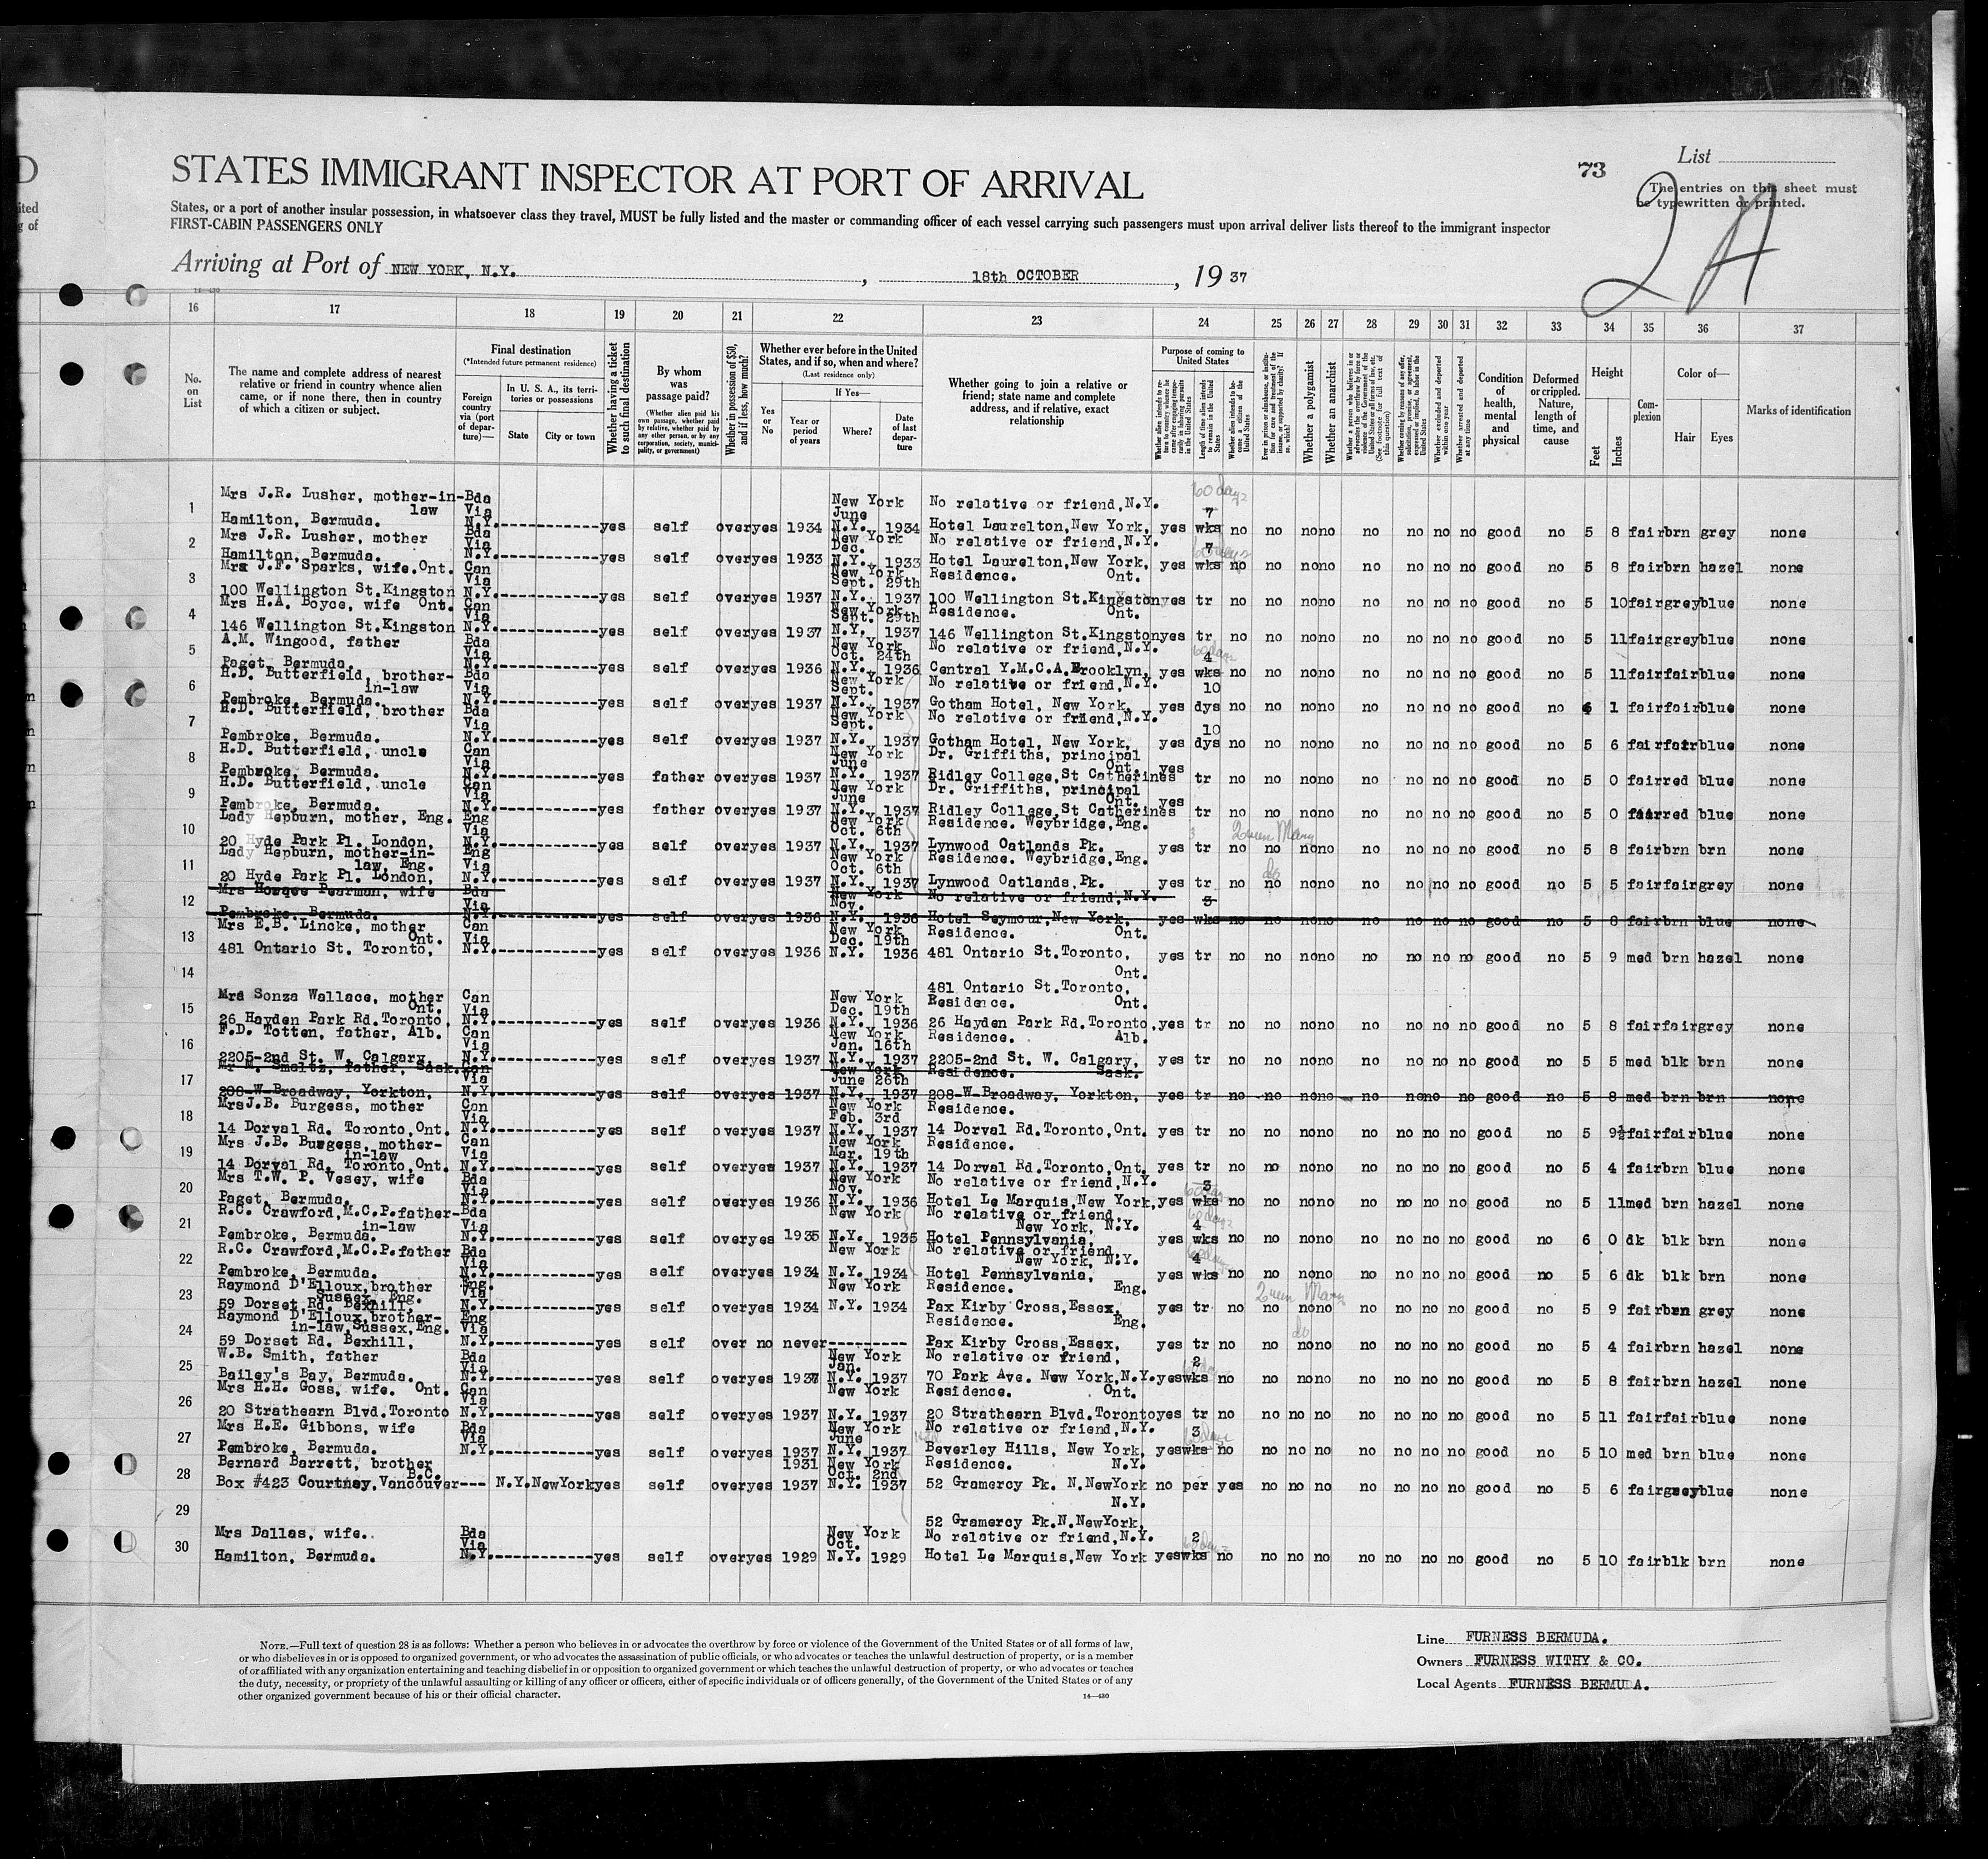 D
ited
g of
STATES IMMIGRANT INSPECTOR AT PORT OF ARRIVAL
73
List
The entries on this sheet must
be typewritten or printed.
2 A
States, or a port of another insular possession, in whatsoever class they travel, MUST be fully listed and the master or commanding officer of each vessel carrying such passengers must upon arrival deliver lists thereof to the immigrant inspector
FIRST-CABIN PASSENGERS ONLY
Arriving at Port of NEW YORK, N.Y. , 18th OCTOBER , 19 37
16 17 18 19 20 21 22 23 24 25 26 27 28 29 30 31 32 33 34 35 36 37
No. on List
The name and complete address of nearest relative or friend in country whence alien came, or if none there, then in country of which a citizen or subject.
Final destination
(*Intended future permanent residence)
Foreign country via (port of departure)—
In U. S. A., its territories or possessions
State
City or town
Whether having a ticket to such final destination
By whom was passage paid?
(Whether alien paid his own passage, whether paid by relative, whether paid by any other person, or by any corporation, society, municipality, or government)
Whether in possession of $50, and if less, how much?
Whether ever before in the United States, and if so, when and where?
(Last residence only)
Yes or No
If Yes—
Year or period of years
Where?
Date of last departure
Whether going to join a relative or friend; state name and complete address, and if relative, exact relationship
Purpose of coming to United States
Length of time alien intends to remain in the United States
Whether a polygamist
Whether an anarchist
Whether excluded and deported within one year
Whether arrested and deported at any time
Condition of health, mental and physical
Deformed or crippled. Nature, length of time, and cause
Height
Feet
Inches
Complexion
Color of—
Hair
Eyes
Marks of identification
1 Mrs J.R. Lusher, mother-in-law Hamilton, Bermuda. Bda Via N.Y. yes self over yes 1934 New York June N.Y. 1934 No relative or friend,N.Y. Hotel Laurelton,New York, yes 60 days 7 wks no no no no no no no no good no 5 8 fair brn grey none
2 Mrs J.R. Lusher, mother Hamilton, Bermuda. Bda Via N.Y. yes self over yes 1933 New York Dec. N.Y. 1933 No relative or friend,N.Y. Hotel Laurelton,New York, yes 60 days 7 wks no no no no no no no no good no 5 8 fair brn hazel none
3 Mrs J.F. Sparks, wife.Ont. 100 Wellington St.Kingston Can Via N.Y. yes self over yes 1937 New York Sept. 29th N.Y. 1937 Residence. Ont. 100 Wellington St.Kingston yes tr no no no no no no no no good no 5 10 fair grey blue none
4 Mrs H.A. Boyce, wife Ont. 146 Wellington St.Kingston Can Via N.Y. yes self over yes 1937 New York Sept. 29th N.Y. 1937 Residence. Ont. 146 Wellington St.Kingston yes tr no no no no no no no no good no 5 11 fair grey blue none
5 A.M. Wingood, father Paget, Bermuda. Bda Via N.Y. yes self over yes 1936 New York Oct. 24th N.Y. 1936 No relative or friend,N.Y. Central Y.M.C.A.Brooklyn, yes 60 days 4 wks no no no no no no no no good no 5 11 fair fair blue none
6 H.D. Butterfield, brother-in-law Pembroke, Bermuda. Bda Via N.Y. yes self over yes 1937 New York Sept. N.Y. 1937 No relative or friend,N.Y. Gotham Hotel, New York, yes 10 dys no no no no no no no no good no 6 1 fair fair blue none
7 H.D. Butterfield, brother Pembroke, Bermuda. Bda Via N.Y. yes self over yes 1937 New York Sept. N.Y. 1937 No relative or friend,N.Y. Gotham Hotel, New York, yes 10 dys no no no no no no no no good no 5 6 fair fair blue none
8 H.D. Butterfield, uncle Pembroke, Bermuda. Can Via N.Y. yes father over yes 1937 New York June N.Y. 1937 Dr. Griffiths, principal Ont. Ridley College,St Catherines yes tr no no no no no no no no good no 5 0 fair red blue none
9 H.D. Butterfield, uncle Pembroke, Bermuda. Can Via N.Y. yes father over yes 1937 New York June N.Y. 1937 Dr. Griffiths, principal Ont. Ridley College,St Catherines yes tr no no no no no no no no good no 5 0 fair red blue none
10 Lady Hepburn, mother, Eng. 20 Hyde Park Pl. London, Eng Via N.Y. yes self over yes 1937 New York Oct. 6th N.Y. 1937 Residence. Weybridge,Eng. Lynwood Oatlands Pk. yes tr no Queen Mary no no no no no no no good no 5 8 fair brn brn none
11 Lady Hepburn, mother-in-law, Eng. 20 Hyde Park Pl. London, Eng Via N.Y. yes self over yes 1937 New York Oct. 6th N.Y. 1937 Residence. Weybridge,Eng. Lynwood Oatlands,Pk. yes tr no do no no no no no no no good no 5 5 fair fair grey none
12 Mrs Horace Pearman, wife Pembroke, Bermuda. Bda Via N.Y. yes self over yes 1936 New York Nov. N.Y. 1936 No relative or friend,N.Y. Hotel Seymour,New York, yes 3 wks no no no no no no no no good no 5 8 fair brn blue none
13 Mrs E.B. Lincke, mother Ont. 481 Ontario St. Toronto, Can Via N.Y. yes self over yes 1936 New York Dec. 19th N.Y. 1936 Residence. Ont. 481 Ontario St.Toronto, yes tr no no no no no no no no good no 5 9 med brn hazel none
14 Ont. 481 Ontario St.Toronto,
15 Mrs Sonza Wallace, mother Ont. 26 Hayden Park Rd.Toronto, Can Via N.Y. yes self over yes 1936 New York Dec. 19th N.Y. 1936 Residence. Ont. 26 Hayden Park Rd.Toronto, yes tr no no no no no no no no good no 5 8 fair fair grey none
16 F.D. Totten, father, Alb. 2205-2nd St. W. Calgary, Can Via N.Y. yes self over yes 1937 New York Jan. 16th N.Y. 1937 Residence. Alb. 2205-2nd St. W. Calgary, yes tr no no no no no no no no good no 5 5 med blk brn none
17 Mr M. Smeltz, father, Sask. 208-W-Broadway, Yorkton, Can Via N.Y. yes self over yes 1937 New York June 26th N.Y. 1937 Residence. Sask. 208-W-Broadway, Yorkton, yes tr no no no no no no no no good no 5 8 med brn brn none
18 Mrs J.B. Burgess, mother 14 Dorval Rd. Toronto,Ont. Can Via N.Y. yes self over yes 1937 New York Feb. 3rd N.Y. 1937 Residence. 14 Dorval Rd.Toronto,Ont. yes tr no no no no no no no no good no 5 9½ fair fair blue none
19 Mrs J.B. Burgess, mother-in-law 14 Dorval Rd. Toronto,Ont. Can Via N.Y. yes self over yes 1937 New York Mar. 19th N.Y. 1937 Residence. 14 Dorval Rd.Toronto,Ont. yes tr no no no no no no no no good no 5 4 fair brn blue none
20 Mrs T.W. P. Vesey, wife Paget, Bermuda. Bda Via N.Y. yes self over yes 1936 New York Nov. N.Y. 1936 No relative or friend,N.Y. Hotel Le Marquis,New York, yes 3 wks no no no no no no no no good no 5 11 med brn hazel none
21 R.C. Crawford,M.C.P.father-in-law Pembroke, Bermuda. Bda Via N.Y. yes self over yes 1935 New York N.Y. 1935 No relative or friend, New York, N.Y. Hotel Pennsylvania, yes 60 days 4 wks no no no no no no no no good no 6 0 dk blk brn none
22 R.C. Crawford,M.C.P.father Pembroke, Bermuda. Bda Via N.Y. yes self over yes 1934 New York N.Y. 1934 No relative or friend, New York, N.Y. Hotel Pennsylvania, yes 60 days 4 wks no no no no no no no no good no 5 6 dk blk brn none
23 Raymond D'Elloux,brother Sussex, Eng. 59 Dorset Rd. Bexhill, Eng. Via N.Y. yes self over yes 1934 New York N.Y. 1934 Residence. Eng. Pax Kirby Cross,Essex, yes tr no Queen Mary no no no no no no no good no 5 9 fair brn grey none
24 Raymond D'Elloux,brother-in-law,Sussex,Eng. 59 Dorset Rd. Bexhill, Eng Via N.Y. yes self over no never Residence. Eng. Pax Kirby Cross,Essex, yes tr no do no no no no no no no good no 5 4 fair brn hazel none
25 W.B. Smith, father Bailey's Bay, Bermuda. Bda Via N.Y. yes self over yes 1937 New York Jan. N.Y. 1937 No relative or friend, 70 Park Ave. New York,N.Y. yes 2 wks no no no no no no no no good no 5 8 fair brn hazel none
26 Mrs H.H. Goss, wife. Ont. 20 Strathearn Blvd.Toronto Can Via N.Y. yes self over yes 1937 New York N.Y. 1937 Residence. Ont. 20 Strathearn Blvd.Toronto yes tr no no no no no no no no good no 5 11 fair fair blue none
27 Mrs H.E. Gibbons, wife Pembroke, Bermuda. Bda Via N.Y. yes self over yes 1937 New York June N.Y. 1937 No relative or friend,N.Y. Beverley Hills, New York, yes 3 wks no no no no no no no no good no 5 10 med brn blue none
28 Bernard Barrett, brother B.C. Box #423 Courtney,Vancouver--- N.Y. NewYork yes self over yes 1931 1937 New York Oct. 2nd N.Y. 1937 Residence. N.Y. 52 Gramercy Pk. N.NewYork no per yes no no no no no no no good no 5 6 fair grey blue none
29 N.Y. 52 Gramercy Pk.N.NewYork,
30 Mrs Dallas, wife. Hamilton, Bermuda. Bda Via N.Y. yes self over yes 1929 New York Oct. N.Y. 1929 No relative or friend,N.Y. Hotel Le Marquis,New York yes 2 60 days wks no no no no no no no no good no 5 10 fair blk brn none
NOTE.—Full text of question 28 is as follows: Whether a person who believes in or advocates the overthrow by force or violence of the Government of the United States or of all forms of law,
or who disbelieves in or is opposed to organized government, or who advocates the assassination of public officials, or who advocates or teaches the unlawful destruction of property, or is a member
of or affiliated with any organization entertaining and teaching disbelief in or opposition to organized government or which teaches the unlawful destruction of property, or who advocates or teaches
the duty, necessity, or propriety of the unlawful assaulting or killing of any officer or officers, either of specific individuals or of officers generally, of the Government of the United States or of any
other organized government because of his or their official character.
14—430
Line FURNESS BERMUDA.
Owners FURNESS WITHY & CO.
Local Agents FURNESS BERMUDA.